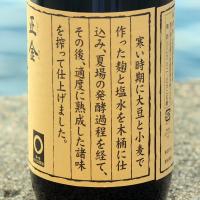 寒い時期に大豆と小麦で
作った麹と塩水を木桶に仕
込み、夏場の発酵過程を経て、
その後、適度に熟成した諸味
を搾って仕上げました。
正金